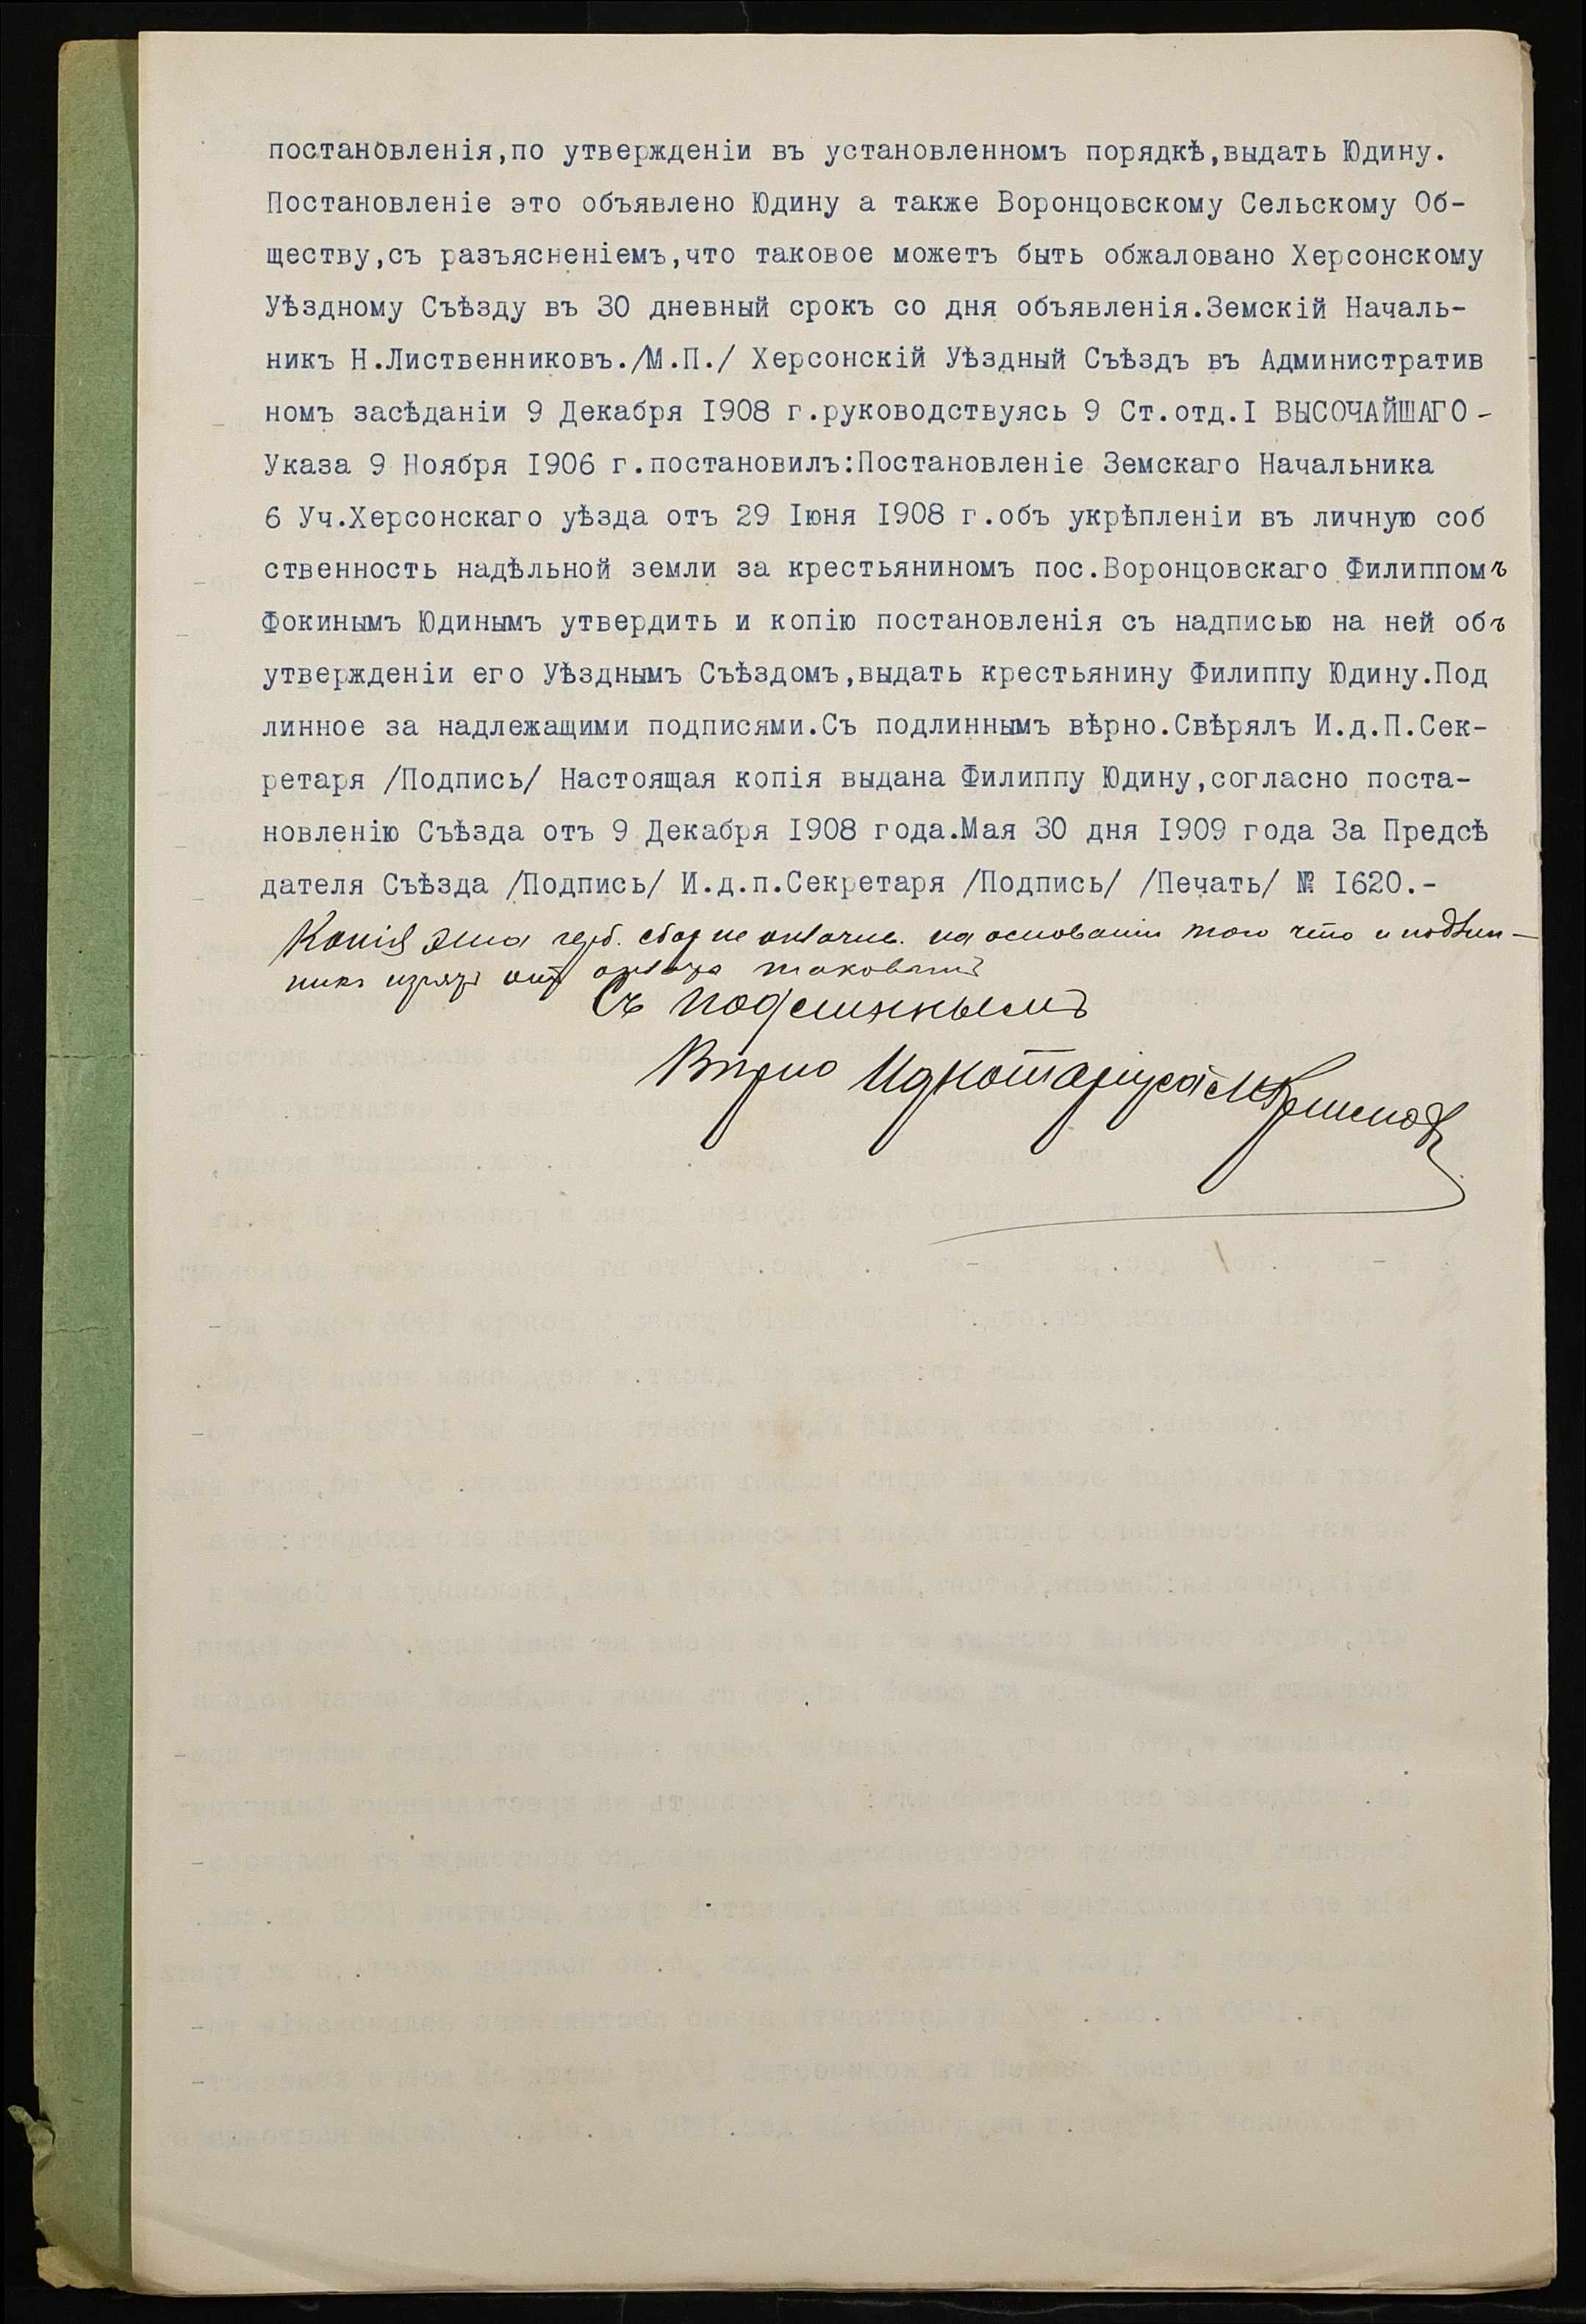 постановленія,по утвержденіи въ установленномъ порядкѣ,выдать Юдину.
Постановленіе это объявлено Юдину а также Воронцовскому Сельскому Об-
ществу,съ разъясненіемъ,что таковое можетъ быть обжаловано Херсонскому
Уѣздному Съѣзду въ 30 дневный срокъ со дня объявленія.Земскій Началь-
никъ Н.Лиственниковъ./М.П./ Херсонскій Уѣздный Съѣздъ въ Административ
номъ засѣданіи 9 Декабря I908 г.руководствуясь 9 Ст.отд.I ВЫСОЧАЙШАГО-
Указа 9 Ноября I906 г.постановилъ:Постановленіе Земскаго Начальника
6 Уч.Херсонскаго уѣзда отъ 29 Іюня I908 г.объ укрѣпленіи въ личную соб
ственность надѣльной земли за крестьяниномъ пос.Воронцовскаго Филиппомъ
Фокинымъ Юдинымъ утвердить и копію постановленія съ надписью на ней объ
утвержденіи его Уѣзднымъ Съѣздомъ,выдать крестьянину Филиппу Юдину.Под
линное за надлежащими подписями.Съ подлиннымъ вѣрно.Свѣрялъ И.д.П.Сек-
ретаря /Подпись/ Настоящая копія выдана Филиппу Юдину,согласно поста-
новленію Съѣзда отъ 9 Декабря I908 года.Мая 30 дня I909 года За Предсѣ
дателя Съѣзда /Подпись/ И.д.п.Секретаря /Подпись/ /Печать/ № I620.-
Копія эта герб. сбор не оплачив. на основаніи того что и подлин-
никъ изъят от таковаго
Съ подлиннымъ
Вѣрно Ид нотаріуса